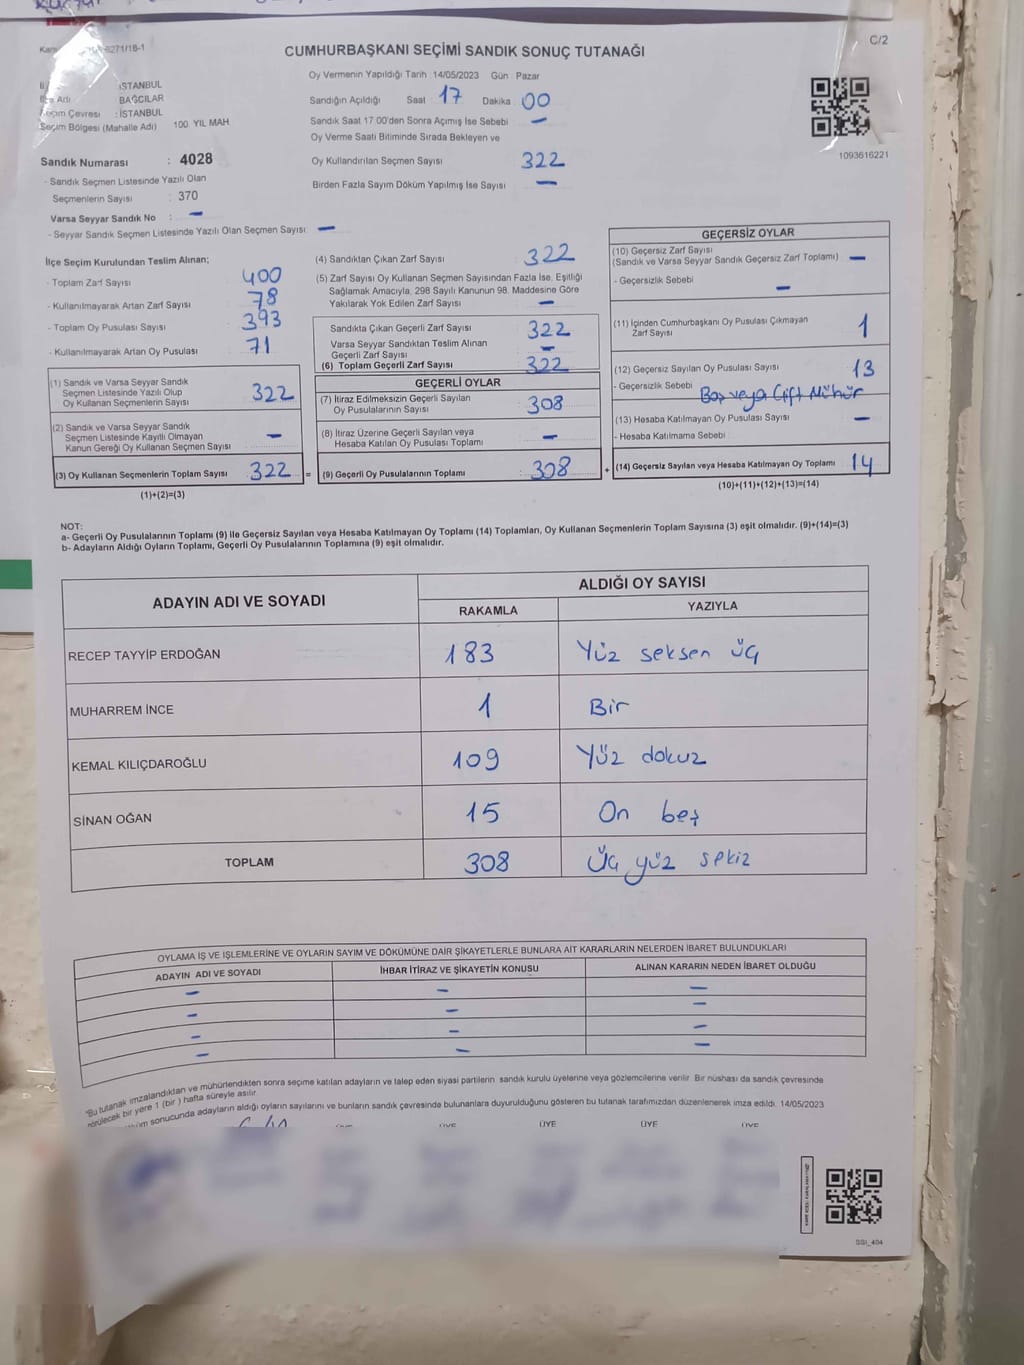 C/2
CUMHURBAŞKANI SEÇİMİ SANDIK SONUÇ TUTANAĞI
Oy Vermenin Yapıldığı Tarih 14/05/2023 Gün Pazar
Sandığın Açıldığı Saat 17 Dakika 00
Sandık Saat 17.00'den Sonra Açımış İse Sebebi –
Oy Verme Saati Bitiminde Sırada Bekleyen ve
Oy Kullandırılan Seçmen Sayısı 322
Birden Fazla Sayım Döküm Yapılmış İse Sayısı –
1093616221
İSTANBUL
BAĞCILAR
Seçim Çevresi : İSTANBUL
Seçim Bölgesi (Mahalle Adı) 100. YIL MAH.
Sandık Numarası : 4028
- Sandık Seçmen Listesinde Yazılı Olan
Seçmenlerin Sayısı : 370
Varsa Seyyar Sandık No : –
- Seyyar Sandık Seçmen Listesinde Yazılı Olan Seçmen Sayısı: –
İlçe Seçim Kurulundan Teslim Alınan;
- Toplam Zarf Sayısı 400
- Kullanılmayarak Artan Zarf Sayısı 78
- Toplam Oy Pusulası Sayısı 393
- Kullanılmayarak Artan Oy Pusulası 71
(1) Sandık ve Varsa Seyyar Sandık
Seçmen Listesinde Yazılı Olup
Oy Kullanan Seçmenlerin Sayısı 322
(2) Sandık ve Varsa Seyyar Sandık
Seçmen Listesinde Kayıtlı Olmayan
Kanun Gereği Oy Kullanan Seçmen Sayısı –
(3) Oy Kullanan Seçmenlerin Toplam Sayısı 322 =
(1)+(2)=(3)
(4) Sandıktan Çıkan Zarf Sayısı 322
(5) Zarf Sayısı Oy Kullanan Seçmen Sayısından Fazla İse, Eşitliği
Sağlamak Amacıyla, 298 Sayılı Kanunun 98. Maddesine Göre
Yakılarak Yok Edilen Zarf Sayısı –
Sandıkta Çıkan Geçerli Zarf Sayısı 322
Varsa Seyyar Sandıktan Teslim Alınan
Geçerli Zarf Sayısı –
(6) Toplam Geçerli Zarf Sayısı 322
GEÇERLİ OYLAR
(7) İtiraz Edilmeksizin Geçerli Sayılan
Oy Pusulalarının Sayısı : 308
(8) İtiraz Üzerine Geçerli Sayılan veya
Hesaba Katılan Oy Pusulası Toplamı –
(9) Geçerli Oy Pusulalarının Toplamı : 308 +
GEÇERSİZ OYLAR
(10) Geçersiz Zarf Sayısı
(Sandık ve Varsa Seyyar Sandık Geçersiz Zarf Toplamı) –
- Geçersizlik Sebebi –
(11) İçinden Cumhurbaşkanı Oy Pusulası Çıkmayan
Zarf Sayısı 1
(12) Geçersiz Sayılan Oy Pusulası Sayısı 13
- Geçersizlik Sebebi Boş veya Çift Mühür
(13) Hesaba Katılmayan Oy Pusulası Sayısı –
- Hesaba Katılmama Sebebi
(14) Geçersiz Sayılan veya Hesaba Katılmayan Oy Toplamı 14
(10)+(11)+(12)+(13)=(14)
NOT:
a- Geçerli Oy Pusulalarının Toplamı (9) ile Geçersiz Sayılan veya Hesaba Katılmayan Oy Toplamı (14) Toplamları, Oy Kullanan Seçmenlerin Toplam Sayısına (3) eşit olmalıdır. (9)+(14)=(3)
b- Adayların Aldığı Oyların Toplamı, Geçerli Oy Pusulalarının Toplamına (9) eşit olmalıdır.
ADAYIN ADI VE SOYADI ALDIĞI OY SAYISI
RAKAMLA YAZIYLA
RECEP TAYYİP ERDOĞAN 183 Yüz seksen üç
MUHARREM İNCE 1 Bir
KEMAL KILIÇDAROĞLU 109 Yüz dokuz
SİNAN OĞAN 15 On beş
TOPLAM 308 Üç yüz sekiz
OYLAMA İŞ VE İŞLEMLERİNE VE OYLARIN SAYIM VE DÖKÜMÜNE DAİR ŞİKAYETLERLE BUNLARA AİT KARARLARIN NELERDEN İBARET BULUNDUKLARI
ADAYIN ADI VE SOYADI İHBAR İTİRAZ VE ŞİKAYETİN KONUSU ALINAN KARARIN NEDEN İBARET OLDUĞU
– – –
– – –
– – –
– – –
"Bu tutanak imzalandıktan ve mühürlendikten sonra seçime katılan adayların ve talep eden siyasi partilerin sandık kurulu üyelerine veya gözlemcilerine verilir. Bir nüshası da sandık çevresinde
görülecek bir yere 1 (bir) hafta süreyle asılır.
sonucunda adayların aldığı oyların sayılarını ve bunların sandık çevresinde bulunanlara duyurulduğunu gösteren bu tutanak tarafımızdan düzenlenerek imza edildi. 14/05/2023
ÜYE ÜYE ÜYE ÜYE ÜYE